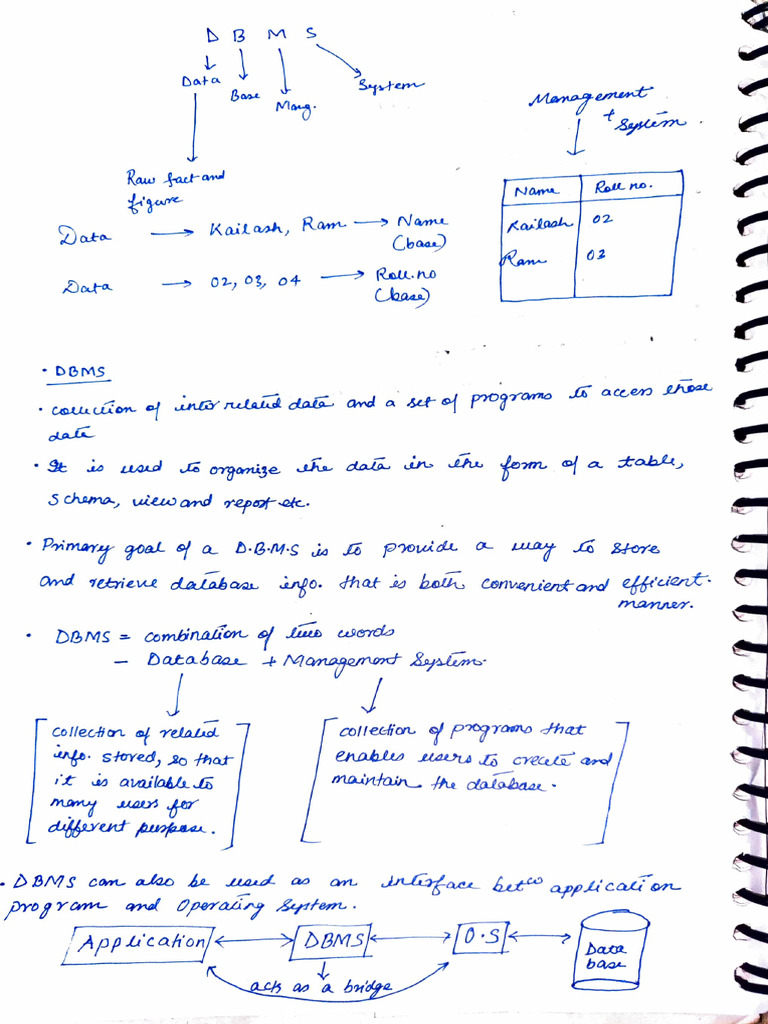 D B M S
Data
Base
Mang.
System
Management
+ System.
Raw fact and
figure
Name Roll no.
Kailash 02
Ram 03
Data → Kailash, Ram → Name
(base)
Data → 02, 03, 04 → Roll.no
(base)
• DBMS
• collection of inter related data and a set of programs to access those
data
• It is used to organize the data in the form of a table,
schema, view and report etc.
• Primary goal of a D.B.M.S is to provide a way to store
and retrieve database info. that is both convenient and efficient.
manner.
• DBMS = combination of two words
– Database + Management System.
collection of related
info. stored, so that
it is available to
many users for
different purpose.
collection of programs that
enables users to create and
maintain the database.
• DBMS can also be used as an interface betw application
program and Operating System.
Application ↔ DBMS ↔ O.S ↔ Data
base
acts as a bridge